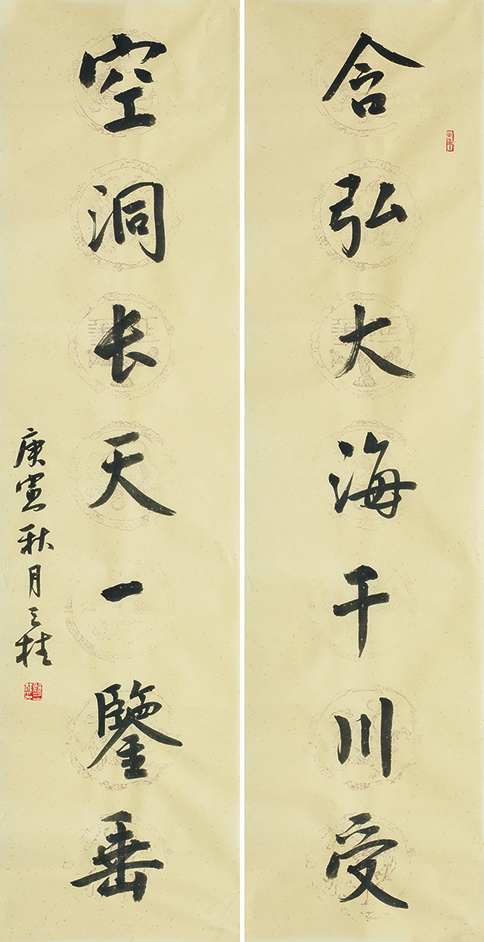 含弘大海千川受
空洞长天一鑒垂
庚寅秋月